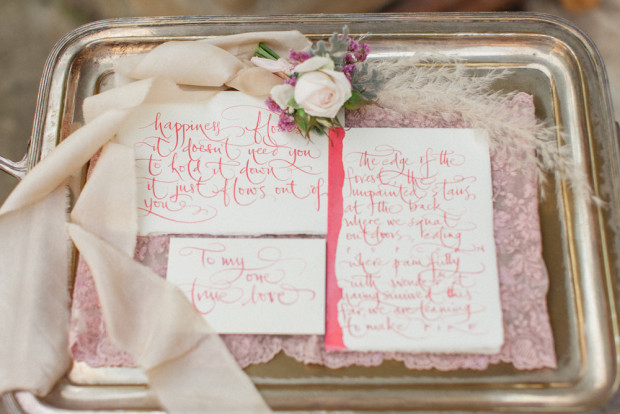 happiness
it doesn't need you
to hold it down
it just flows out of
you
To my
one
true love
The edge of the
forest the
unpainted stairs,
at the back
where we squat
outdoors, eating
where painfully
with wonder at
far we are
to make